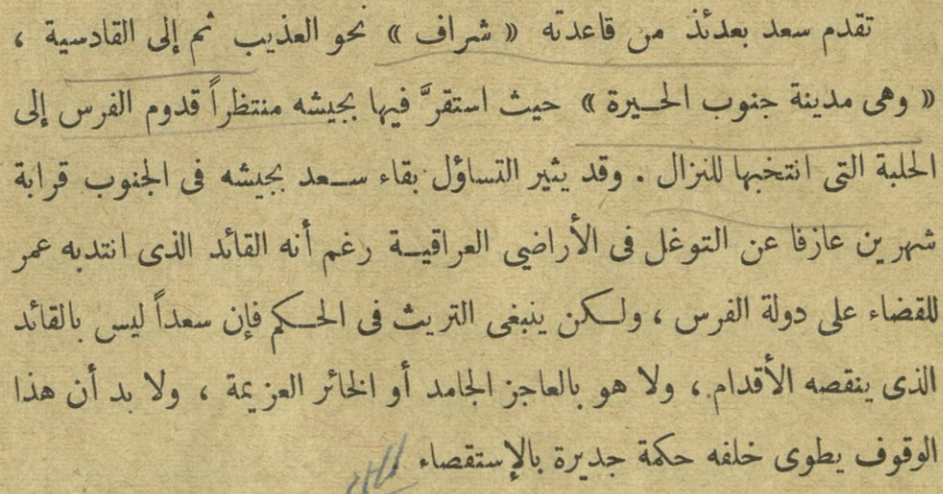 تقدم سعد بعدئذ من قاعدته « شراف » نحو العذيب ثم إلى القادسية ،
« وهى مدينة جنوب الحيرة » حيث استقرَّ فيها بجيشه منتظراً قدوم الفرس إلى
الحلبة التى انتخبها للنزال . وقد يثير التساؤل بقاء سعد بجيشه فى الجنوب قرابة
شهرين عازفا عن التوغل فى الأراضي العراقية رغم أنه القائد الذى انتدبه عمر
للقضاء على دولة الفرس ، ولكن ينبغى التريث فى الحكم فإن سعداً ليس بالقائد
الذى ينقصه الأقدام ، ولا هو بالعاجز الجامد أو الخائر العزيمة ، ولا بد أن هذا
الوقوف يطوى خلفه حكمة جديرة بالإستقصاء .